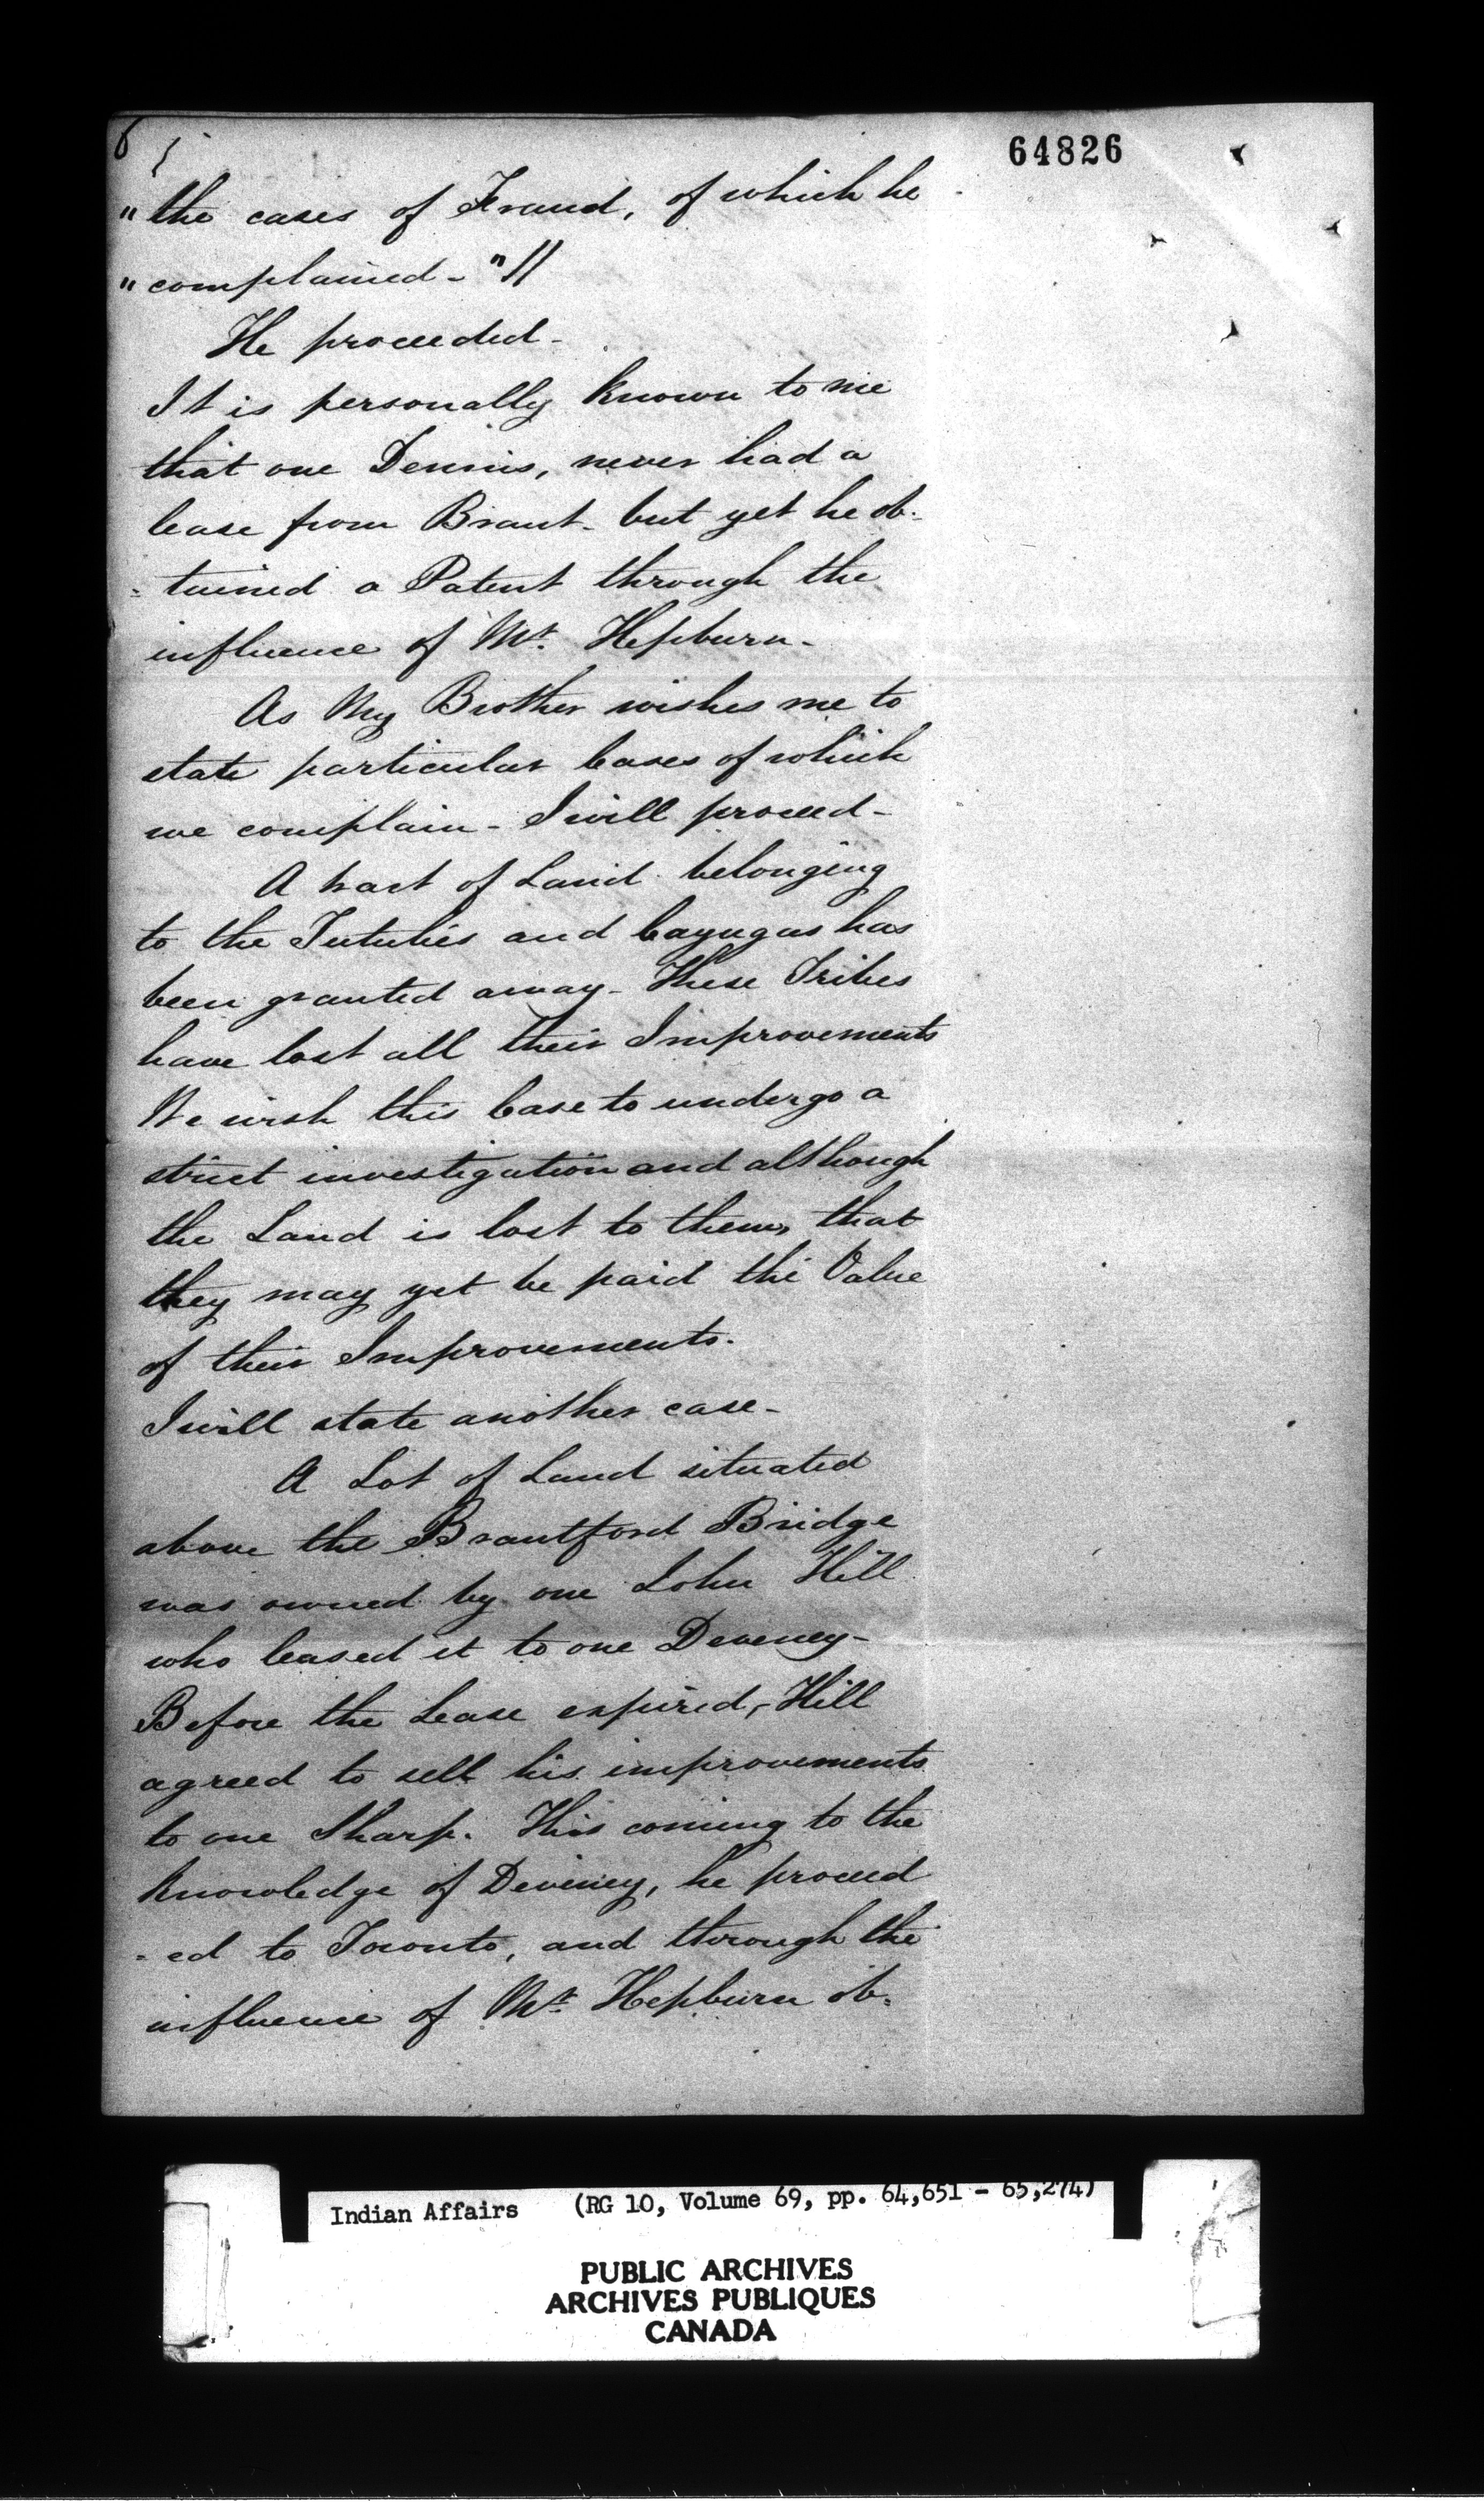 64826
"the cases of Fraud, of which he
"complained-"//
He proceeded-
It is personally known to me
that one Dennis, never had a
lease from Brant- but yet he ob-
=tained a Patent through the
influence of Mr. Hepburn-
As My Brother wishes me to
state particular Cases of which
we complain- I will proceed-
A tract of Land belonging
to the Tutulies and Cayugas has
been granted away- These Tribes
have lost all their Improvements
We wish this Case to undergo a
strict investigation and although
the Land is lost to them, that
they may yet be paid the Value
of their Improvements.
I will state another case-
A Lot of Land situated
above the Brantford Bridge
was owned by one John Hill
who leased it to one Deveney-
Before the Lease expired, Hill
agreed to sell his improvements
to one Sharp. This coming to the
Knowledge of Deveney, he proceed
=ed to Toronto, and through the
influence of Mr. Hepburn ob=
Indian Affairs (RG 10, Volume 69, pp. 64,651 - 65,274)
PUBLIC ARCHIVES
ARCHIVES PUBLIQUES
CANADA